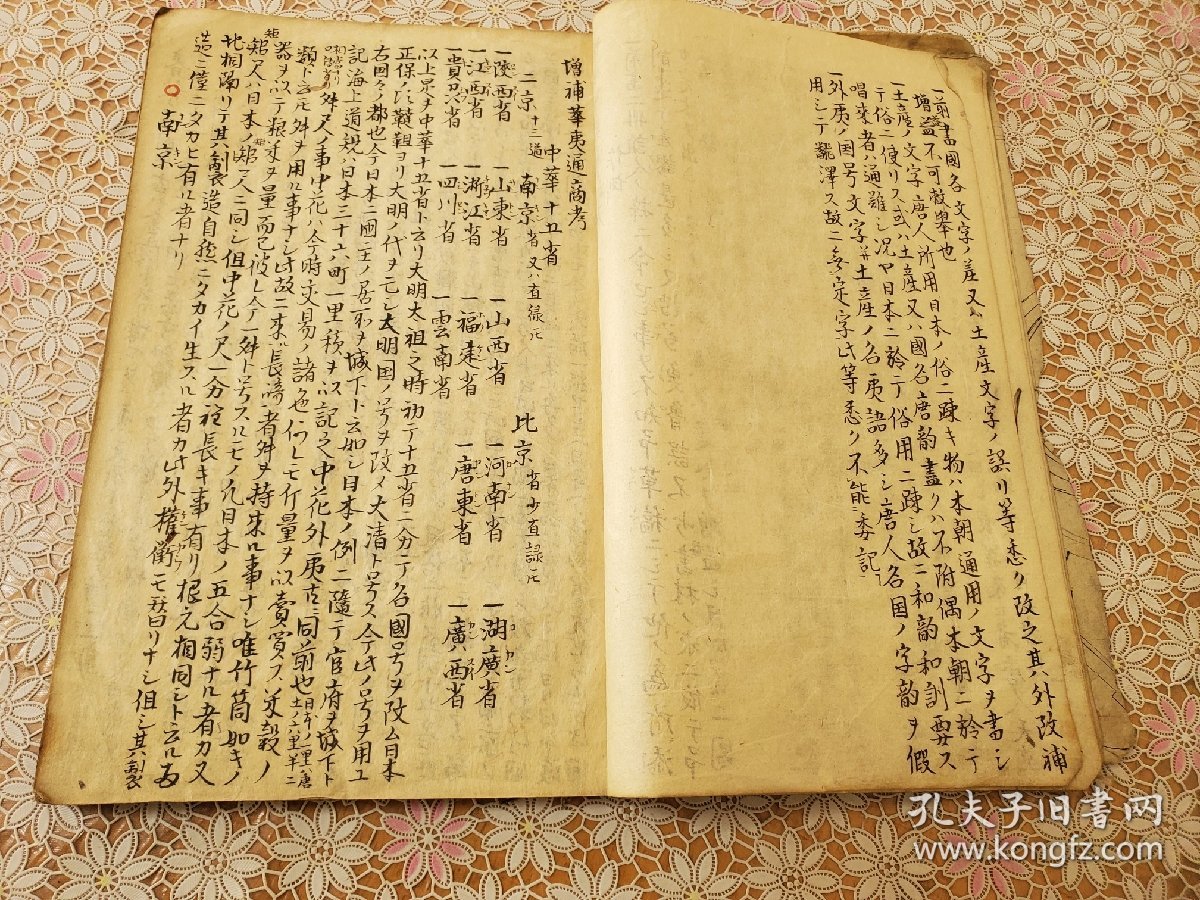 一前書國各文字ノ差又ハ土産文字ノ誤リ等悉ク改之其外改補
増益不可救挙也
一土産ノ文字唐人所用日本ノ俗ニ疎キ物ハ本朝通用ノ文字ヲ書シ
テ俗ニ使リス或ハ土産又ハ國名唐韵盡クハ不附偶本朝ニ於テ
唱来者ハ通難シ況ヤ日本ニ於テ俗用ニ疎シ故ニ和韵和訓要ス
一外夷ノ国号文字并土産ノ名夷語多シ唐人名国ノ字韵ヲ假
用シテ飜澤ス故ニ無定字此等悉ク不能委記
増補華夷通商考
中華十五省
二京 十三道 南京 省又ハ直綠 比京 省少直録
一陜西省 一山東省 一山西省 一河南省 一湖廣省
一江西省 一淅江省 一福建省 一唐東省 一廣西省
一貴州省 一四川省 一雲南省
以上是ヲ中華十五省ト云リ大明太祖之時初テ十五省ニ分テ名國号ヲ改ム日本
正保ノ頃韃靼ヨリ大明ノ代ヲ亡シ大明国ノ号ヲ改メ大清ト号ス今此ノ号ヲ用ユ
右国々ノ都也今日本ニ國王ノ居所ヲ城下ト云如シ日本ノ例ニ隨テ官府ヲ城下ト
記海上道規ハ日本三十六町一里積ヲ以記之中花外夷古三同前也
類ト云ル舛ヲ用ル事ナシ此故ニ来長﨑者舛ヲ持来ル事ナシ唯竹筒如キノ
器ヲ以テ粮米ヲ量而已彼レ今一舛ト号スルモノ凡日本ノ五合弱ナル者カ又
矩尺ハ日本ノ矩尺ニ同シ但中花ノ尺一分程長キ事有リ根元相同シト云ルあ
地相隔リテ其製造自然ニタカイ生スル者カ此外權衡ニモ替リナシ但シ其製
造ニ僅ニタカヒ有ル者ナリ
南京
孔夫子旧書网
www.kongfz.com